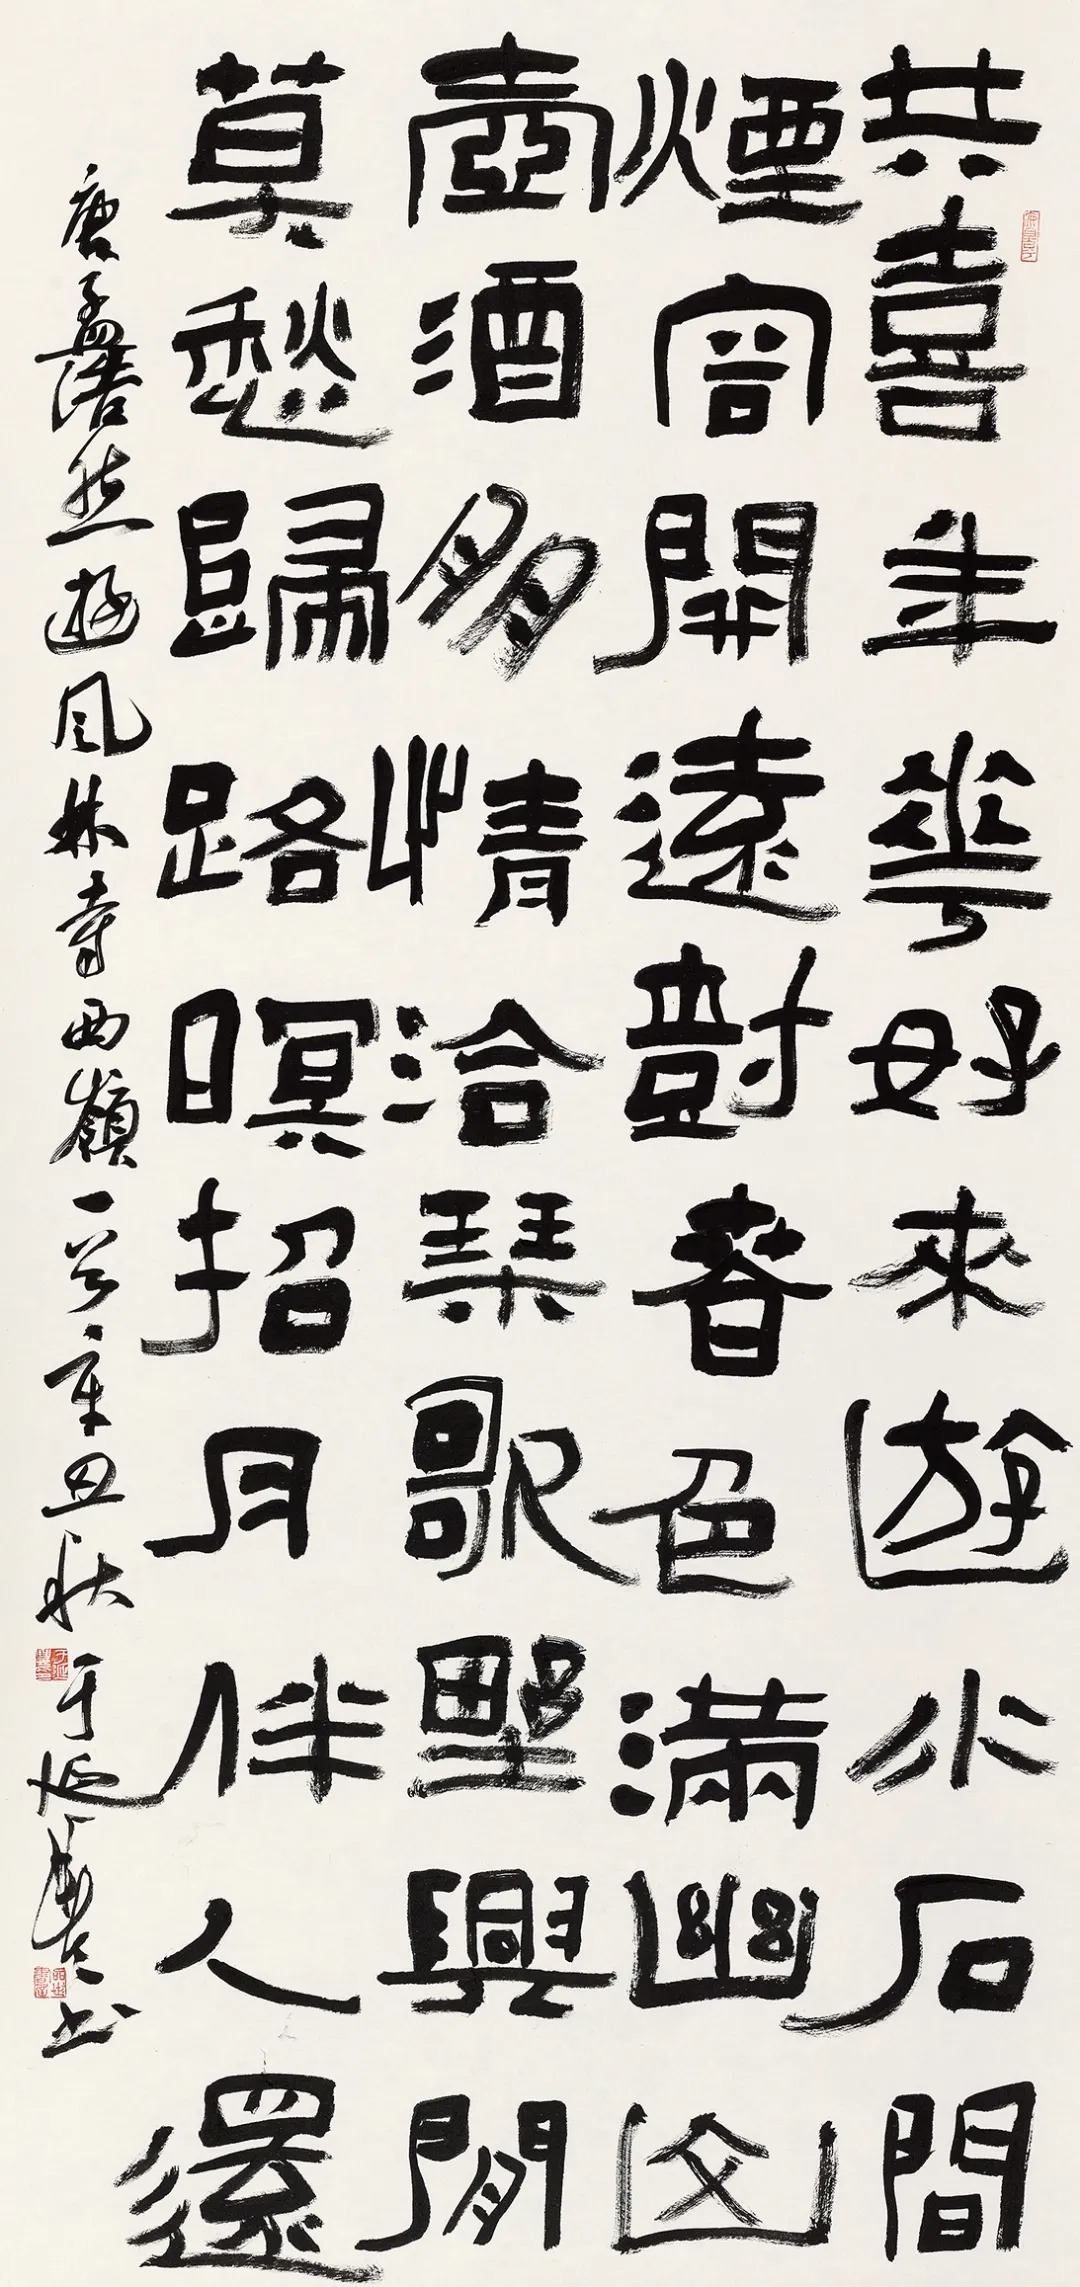 共喜年華好來遊水石間
煙容開遠尌春色滿幽山
壺酒朋情洽琴歌野興閒
莫愁歸路暝招月伴人還
唐孟浩然遊鳳林寺西嶺一首辛丑秋于書